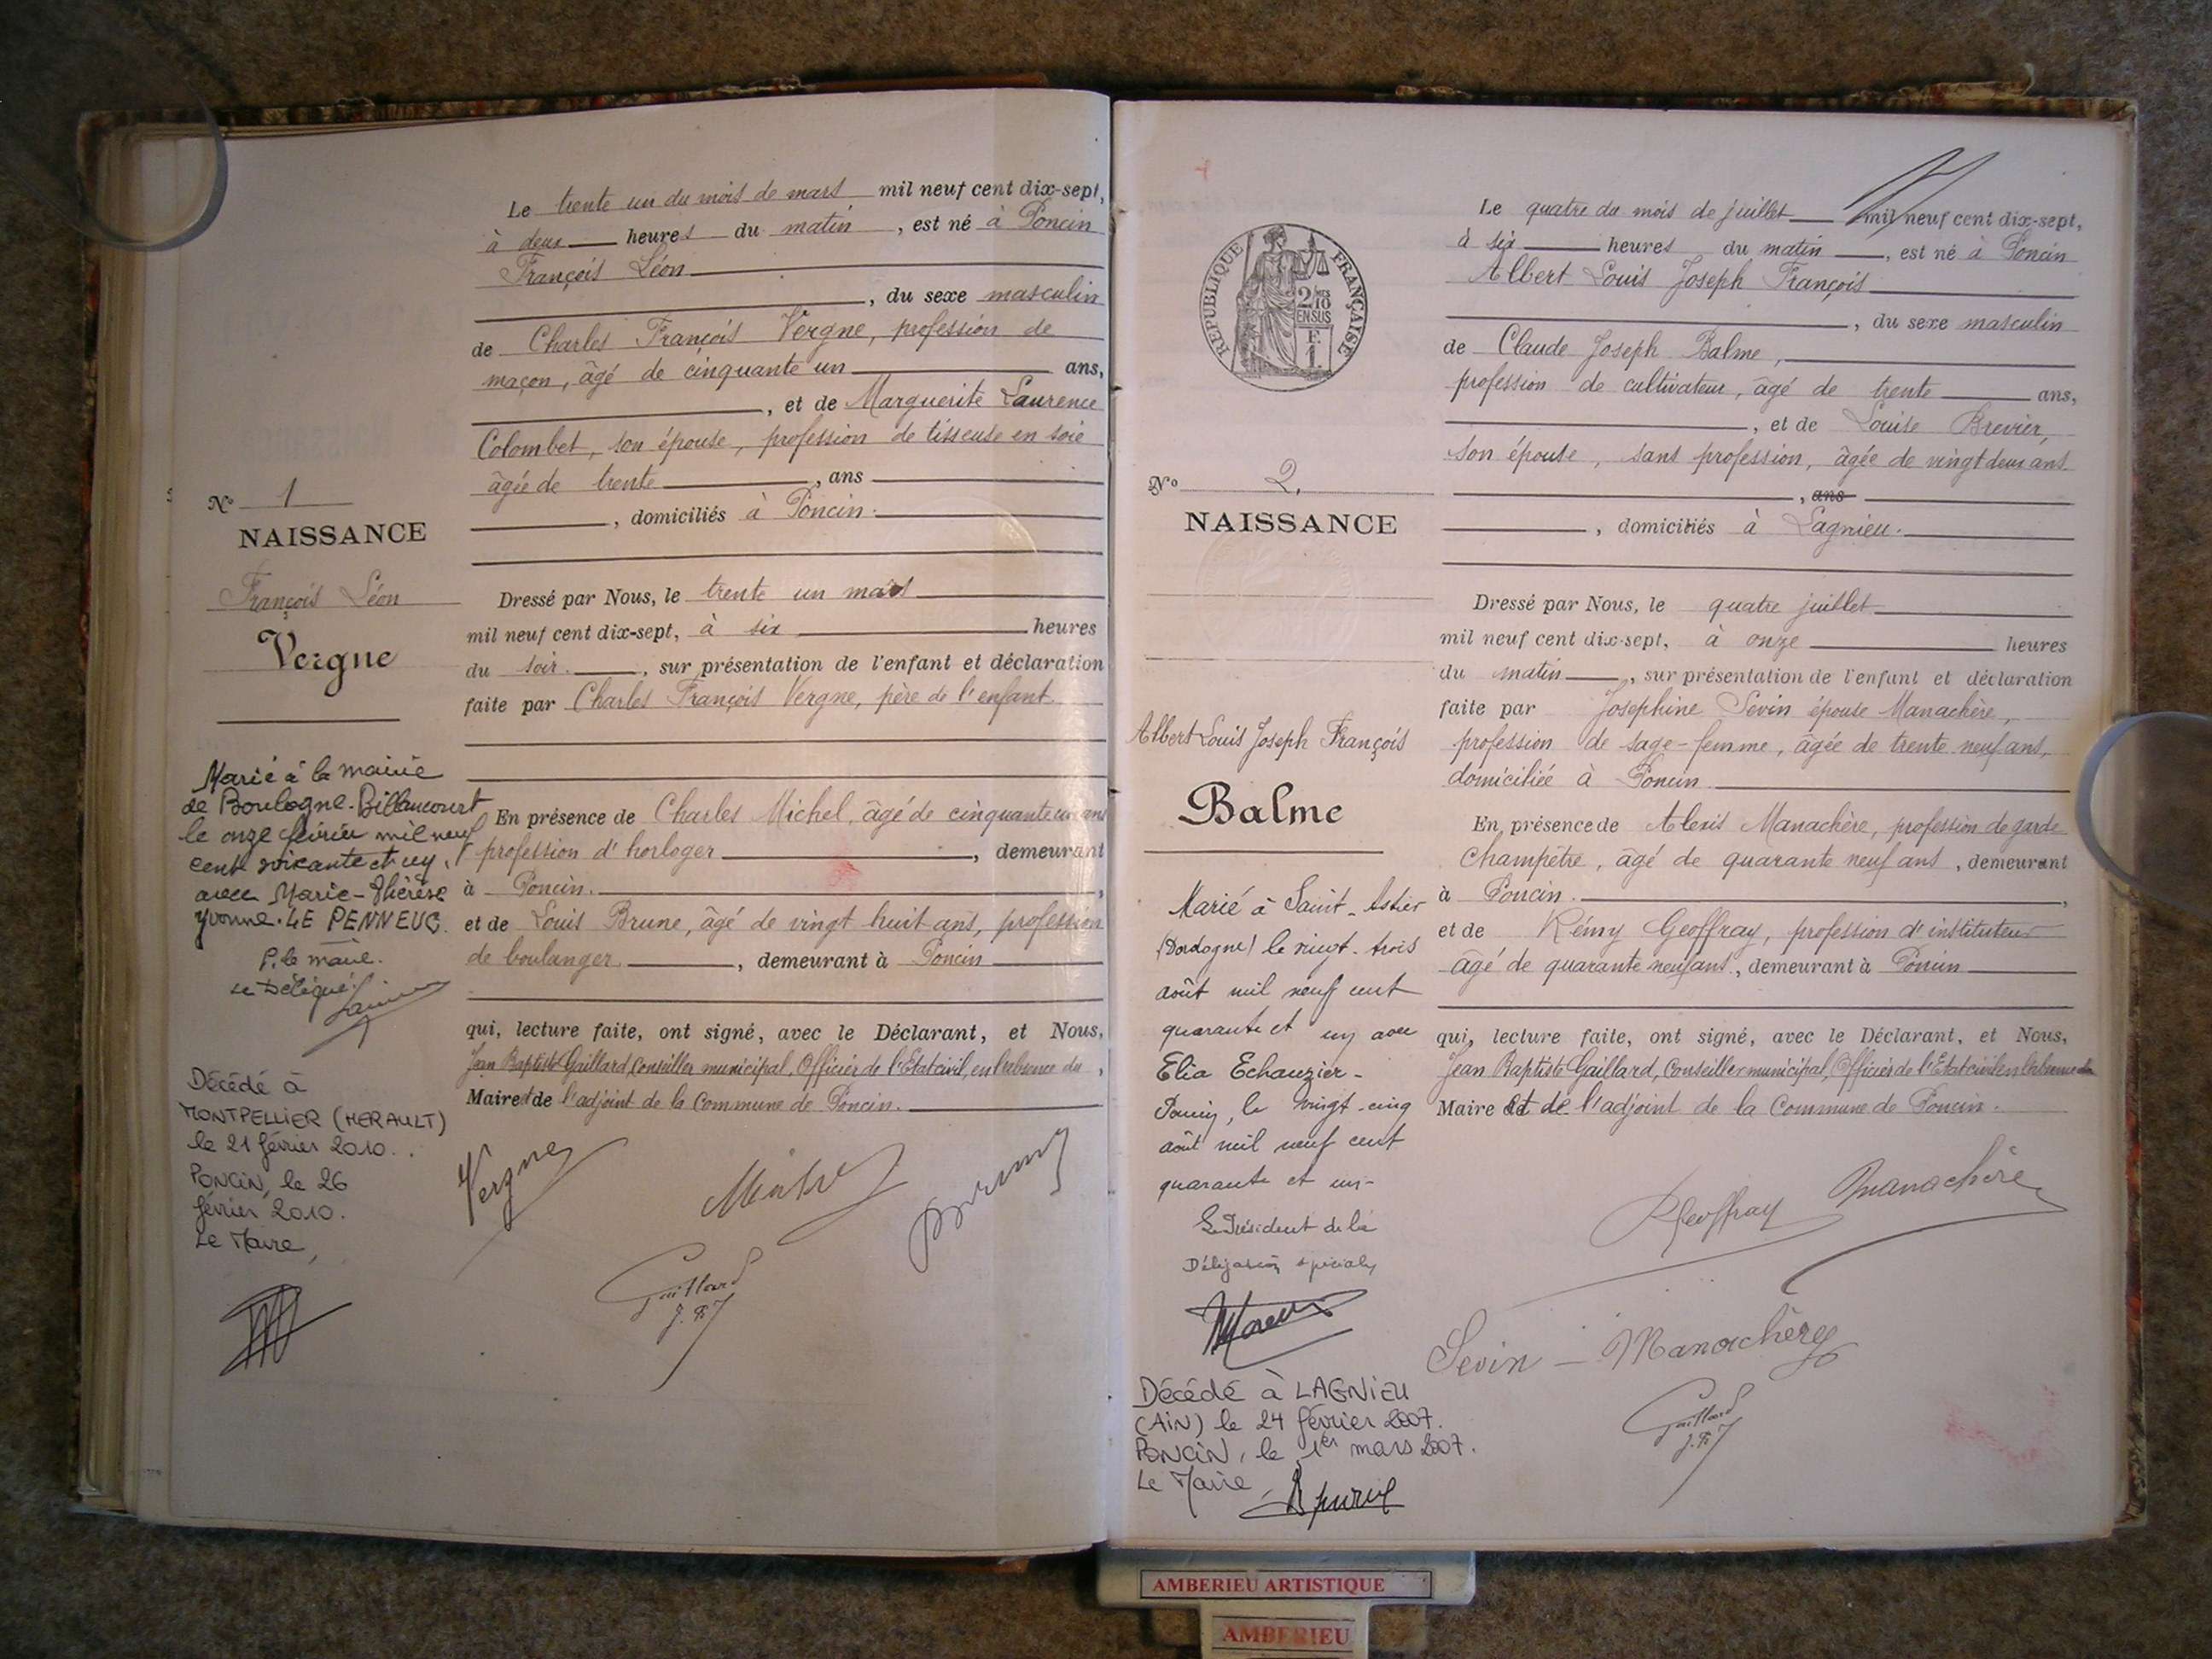 Le trente un du mois de mars mil neuf cent dix-sept,
à deux heures du matin, est né à Poncin
François Léon
, du sexe masculin
de Charles François Vergne, profession de
maçon, âgé de cinquante un ans,
, et de Marguerite Laurence
Colombet, son épouse, profession de tisseuse en soie
âgée de trente, ans
, domiciliés à Poncin.
Nº 1
NAISSANCE
François Léon
Vergne
Dressé par Nous, le trente un mars
mil neuf cent dix-sept, à six heures
du soir, sur présentation de l'enfant et déclaration
faite par Charles François Vergne, père de l'enfant
En présence de Charles Michel, âgé de cinquante un ans
profession d'horloger, demeurant
à Poncin.,
et de Louis Brune, âgé de vingt huit ans, profession
de boulanger, demeurant à Poncin
qui, lecture faite, ont signé, avec le Déclarant, et Nous,
Jean Baptiste Gaillard, Conseiller municipal, Officier de l'Etat civil, en l'absence du,
Maire et de l'adjoint de la Commune de Poncin.
Vergne
Gaillard
J. B.
Marié à la mairie
de Boulogne-Billancourt
le onze février mil neuf
cent soixante et un
avec Marie-Thérèse
Yvonne LE PENNEUC.
P. le maire.
Le Délégué
Décédé à
MONTPELLIER (HERAULT)
le 21 février 2010.
PONCIN, le 26
février 2010.
Le Maire,
REPUBLIQUE FRANÇAISE
2/10
EN SUS
F.
1.
Le quatre du mois de juillet mil neuf cent dix-sept,
à six heures du matin, est né à Poncin
Albert Louis Joseph François
, du sexe masculin
de Claude Joseph Balme,
profession de cultivateur, âgé de trente ans,
, et de Louise Brevier,
son épouse, sans profession, âgée de vingt deux ans
, ans
, domiciliés à Lagnieu.
Nº 2.
NAISSANCE
Albert Louis Joseph François
Balme
Dressé par Nous, le quatre juillet
mil neuf cent dix-sept, à onze heures
du matin, sur présentation de l'enfant et déclaration
faite par Joséphine Sevin épouse Manachère,
profession de sage-femme, âgée de trente neuf ans,
domiciliée à Poncin
En présence de Alexis Manachère, profession de garde
champêtre, âgé de quarante neuf ans, demeurant
à Poncin.,
et de Rémy Geoffray, profession d'instituteur
âgé de quarante neuf ans, demeurant à Poncin
qui, lecture faite, ont signé, avec le Déclarant, et Nous,
Jean Baptiste Gaillard, Conseiller municipal, Officier de l'Etat civil en l'absence du
Maire et de l'adjoint de la Commune de Poncin.
RGeoffray Manachère
Sevin - Manachère
Gaillard
J. B.
Marié à Saint-Astier
(Dordogne) le vingt-trois
août mil neuf cent
quarante et un avec
Elia Echauzier -
Poncin, le vingt-cinq
août mil neuf cent
quarante et un -
Le Président de la
Délégation spéciale,
Décédé à LAGNIEU
(AIN) le 24 février 2007.
PONCIN, le 1er mars 2007.
Le Maire,
AMBERIEU ARTISTIQUE
AMBERIEU